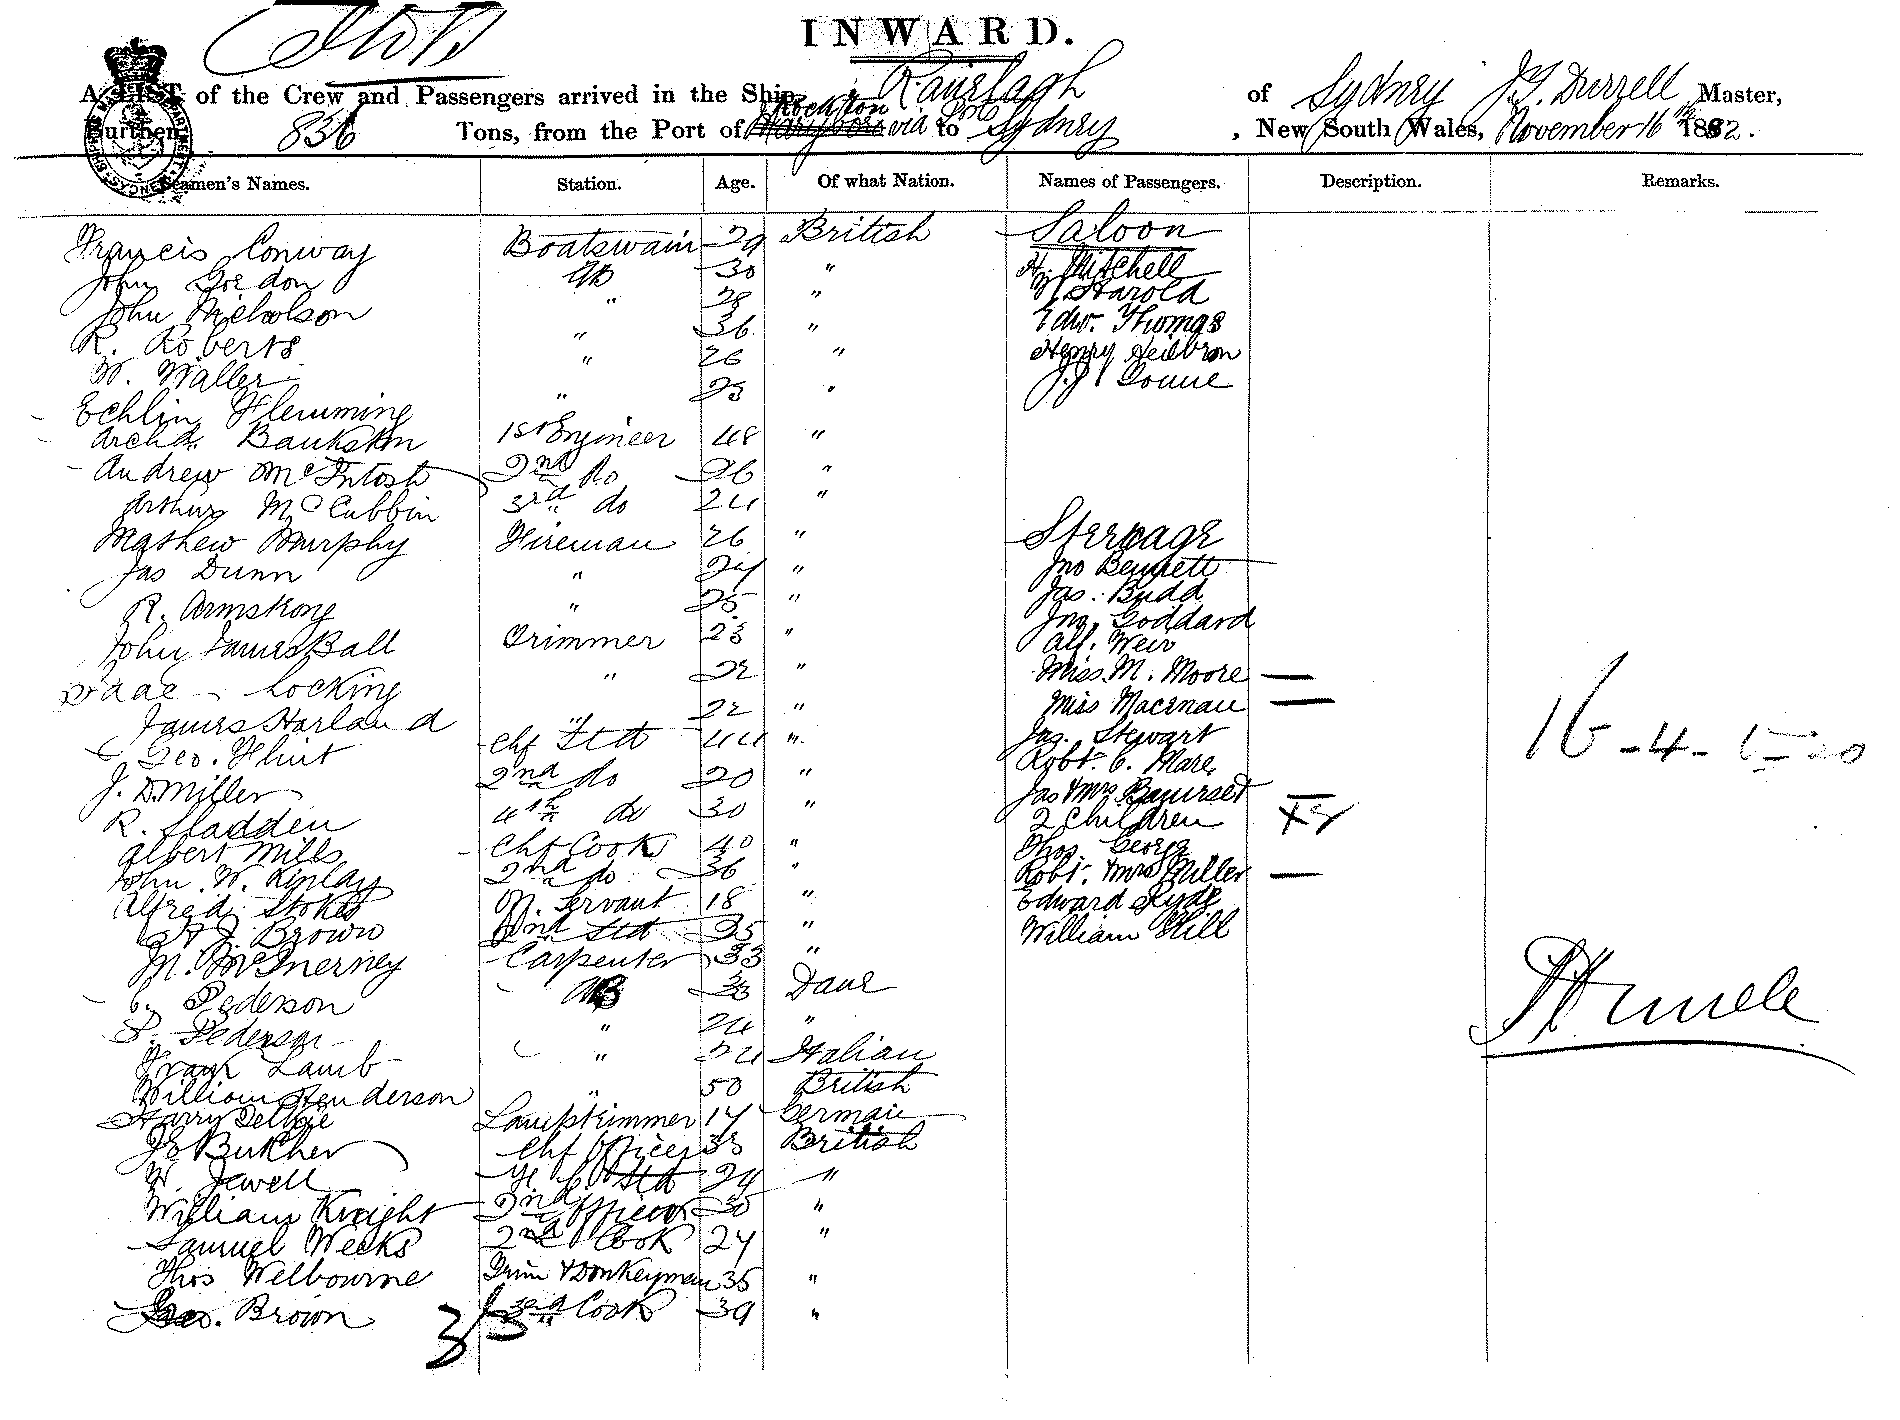 INWARD.
A LIST of the Crew and Passengers arrived in the Ship, Ranelagh of Sydney J.G. Durrell Master,
Burthen 836 Tons, from the Port of Rockhton Maryboro via to Sydney, New South Wales, November 16th 1882.
Seamen's Names. Station. Age. Of what Nation. Names of Passengers. Description. Remarks.
Francis Conway Boatswain 29 British Saloon
John Gordon AB 30 " H. Mitchell
John Nicholson " 28 " Harold
R. Roberts " 36 " Edw. Thomas
W. Waller " 26 " Henry Heilbron
Echlin Flemming " 23 "
Archd. Bankston 1st Engineer 48 "
Andrew McIntosh 2nd do 26 "
Arthur McCubbin 3rd do 24 "
Mathew Murphy Fireman 26 " Steerage
Jas Dunn " 24 " Jno Bennett
R. Armstrong " 25 " Jas. Budd
John James Ball Trimmer 23 " Jno. Goddard
Alf. Weir
Isaac Locking " 22 " Miss M. Moore
James Harland " 22 " Miss Macnau
Geo. Flint Chf Std 44 " Jas. Stewart
J. D. Miller 2nd do 20 " Robt. C. Mare
R. Sladden 4th do 30 " Jas & Mrs
2 Children
Albert Mills Chf Cook 40 " Thos. George
John. W. Kinlay 2nd do 36 " Robt. & Mrs Miller
Alfred Stokes M. Servant 18 " Edward Hyde
J. Brown 2nd Std 25 " William Hill
M. McInerney Carpenter 33 "
C. Pederson AB 38 Dane
P. Pederson " 24 "
Frank Lamb " 24 Italian
William Henderson " 50 British
Harry Lamptrimmer 17 German
Butcher Chf Officer 33 British
W. Jewell Std 24 "
William Knight 2nd Officer 30 "
Samuel Weeks 2nd Cook 24 "
Thos Welbourne Trim & Donkeyman 35 "
Geo. Brown 3rd Cook 39 "
35
16-4-15-20